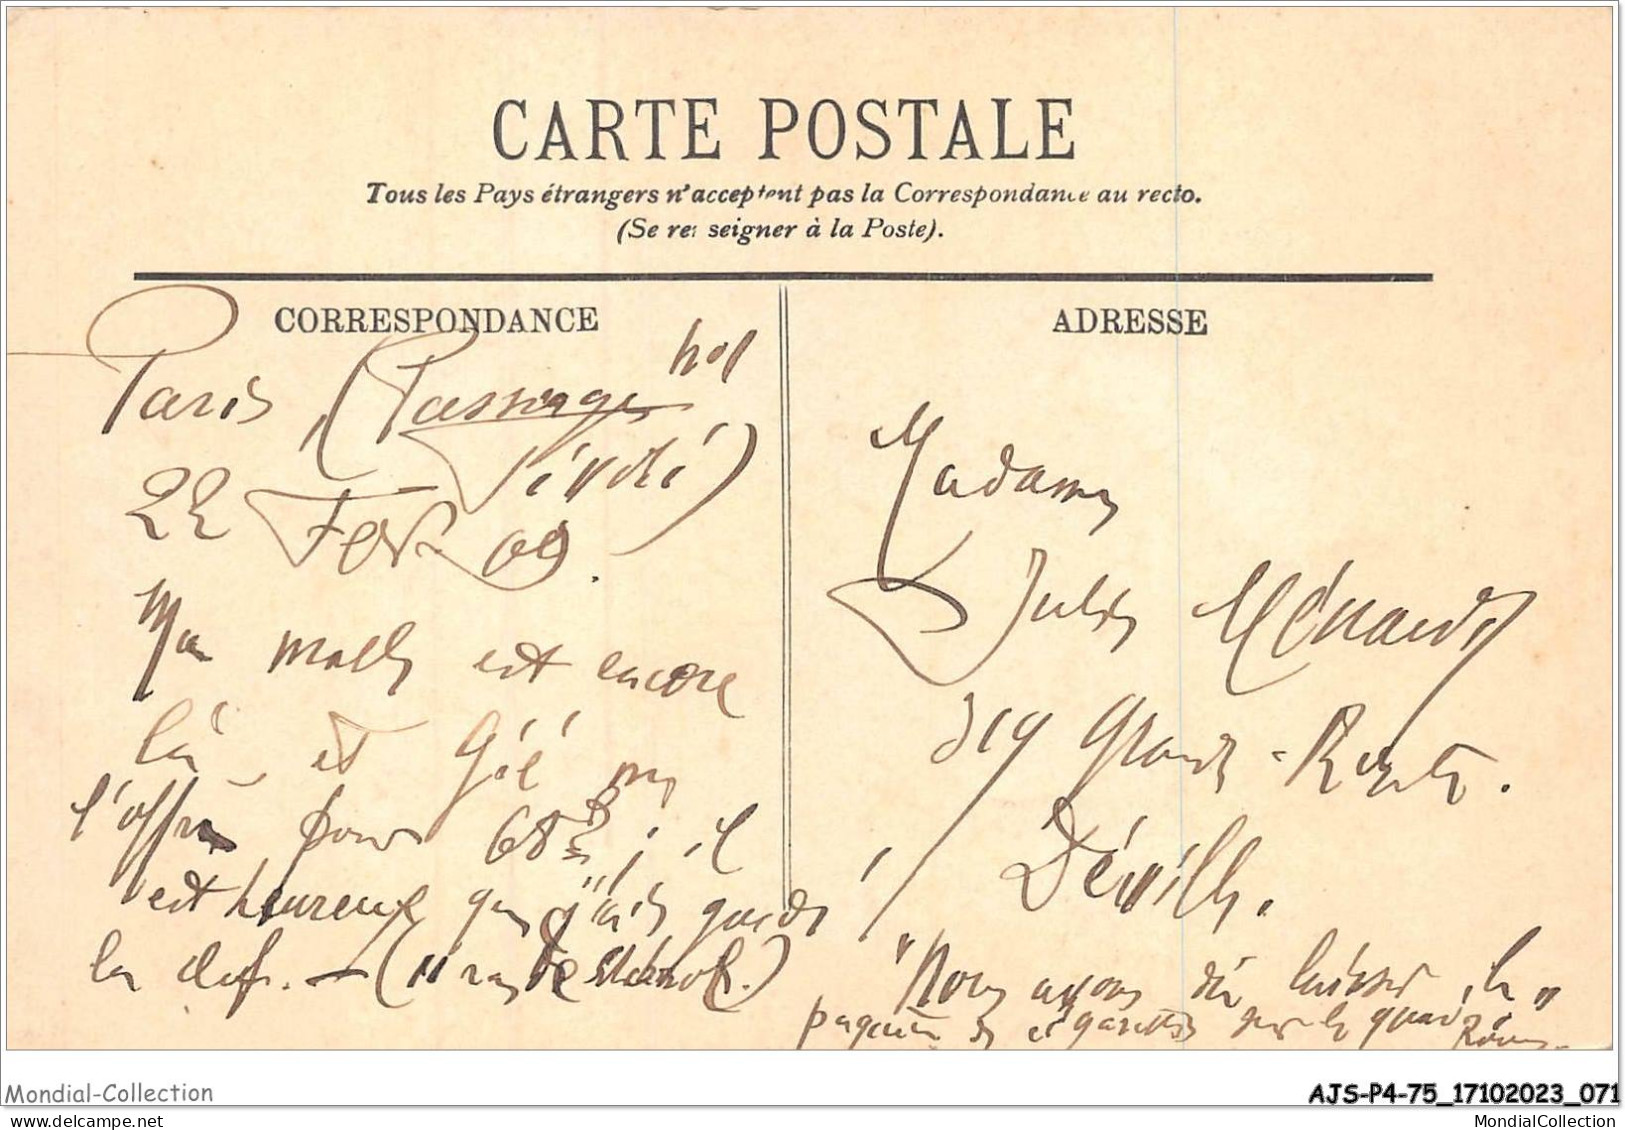 CARTE POSTALE
Tous les Pays étrangers n'acceptent pas la Correspondance au recto.
(Se re seigner à la Poste).
CORRESPONDANCE
ADRESSE
Paris, (Passage
Tivoli)
22 Fev 09.
Ma malle est encore
là et
l'offre pour 68 ; il
est heureux que j'aie gardé
la clef. — (11 r. de Stockholm.)
Madame
Julien Ménard
319 Grande-Route.
Déville.
"Nous avons dû laisser le"
paquet de cigarettes sur le quai,
Mondial-Collection
AJS-P4-75_17102023_071
MondialCollection